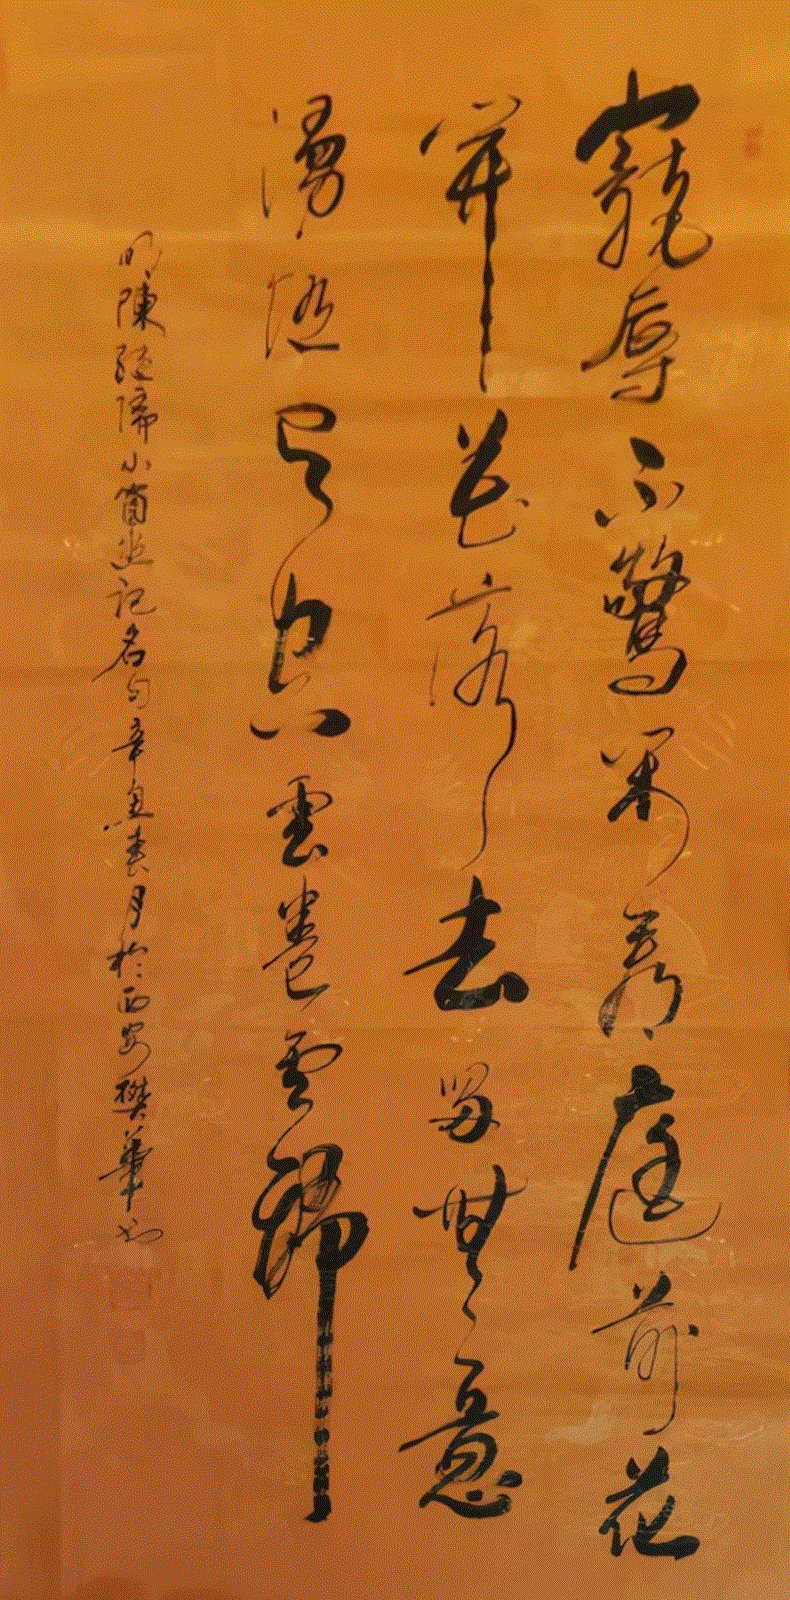 寵辱不驚閒看庭前花
開花落去留無意
漫隨天外雲卷雲舒
明陳繼儒小窗幽記名句辛丑春月於西安樊華書